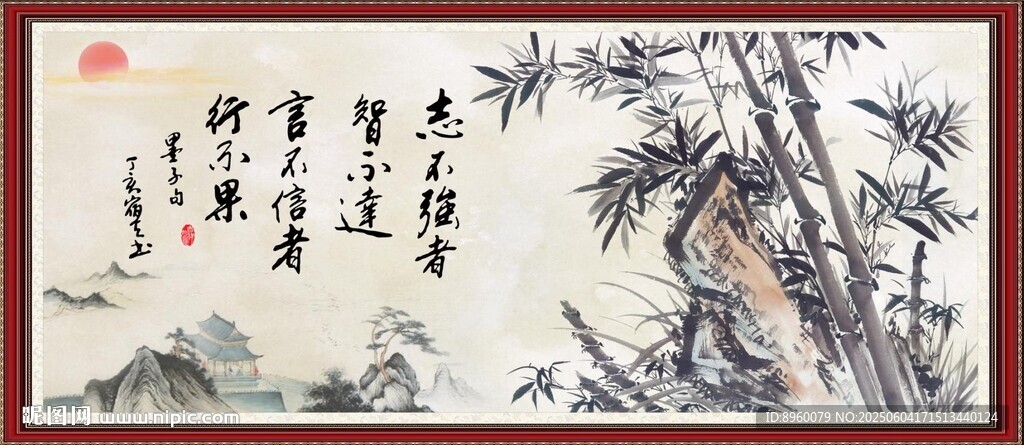 志不強者
智不達
言不信者
行不果
墨子句
丁亥宿夫书
昵图网 www.nipic.com
ID:8960079 NO:20250604171513440124